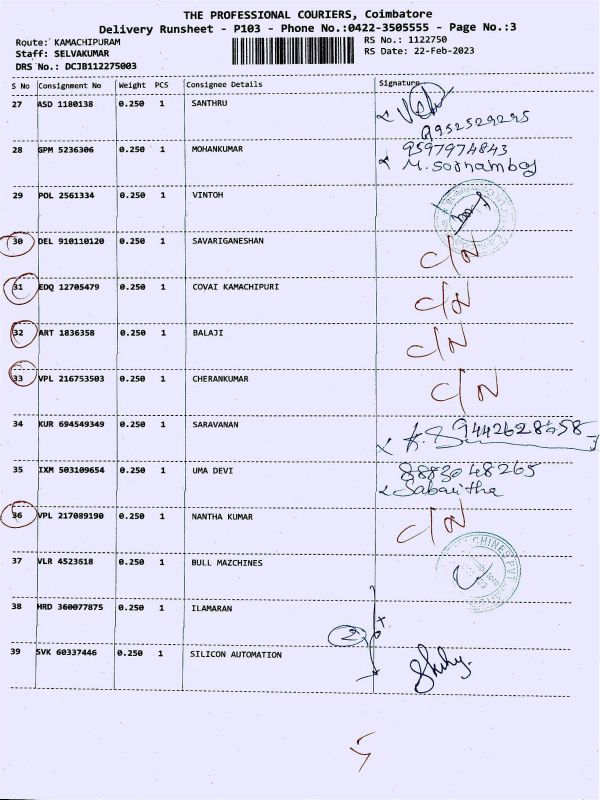 THE PROFESSIONAL COURIERS, Coimbatore
Delivery Runsheet - P103 - Phone No.:0422-3505555 - Page No.:3
Route: KAMACHIPURAM
RS No.: 1122750
Staff: SELVAKUMAR
RS Date: 22-Feb-2023
DRS No.: DCJB112275003
S No Consignment No Weight PCS Consignee Details Signature
27 ASD 1180138 0.250 1 SANTHRU
9952529295
28 GPM 5236306 0.250 1 MOHANKUMAR 9597974843
M. Sornambay
29 POL 2561334 0.250 1 VINTOH
30 DEL 910110120 0.250 1 SAVARIGANESHAN C/N
31 EDQ 12705479 0.250 1 COVAI KAMACHIPURI C/N
32 ART 1836358 0.250 1 BALAJI C/N
33 VPL 216753503 0.250 1 CHERANKUMAR C/N
34 KUR 694549349 0.250 1 SARAVANAN 9442628658
35 IXM 503109654 0.250 1 UMA DEVI 8883048265
Sabaritha
36 VPL 217089190 0.250 1 NANTHA KUMAR C/N
37 VLR 4523618 0.250 1 BULL MAZCHINES
38 HRD 360077875 0.250 1 ILAMARAN
2
39 SVK 60337446 0.250 1 SILICON AUTOMATION
5